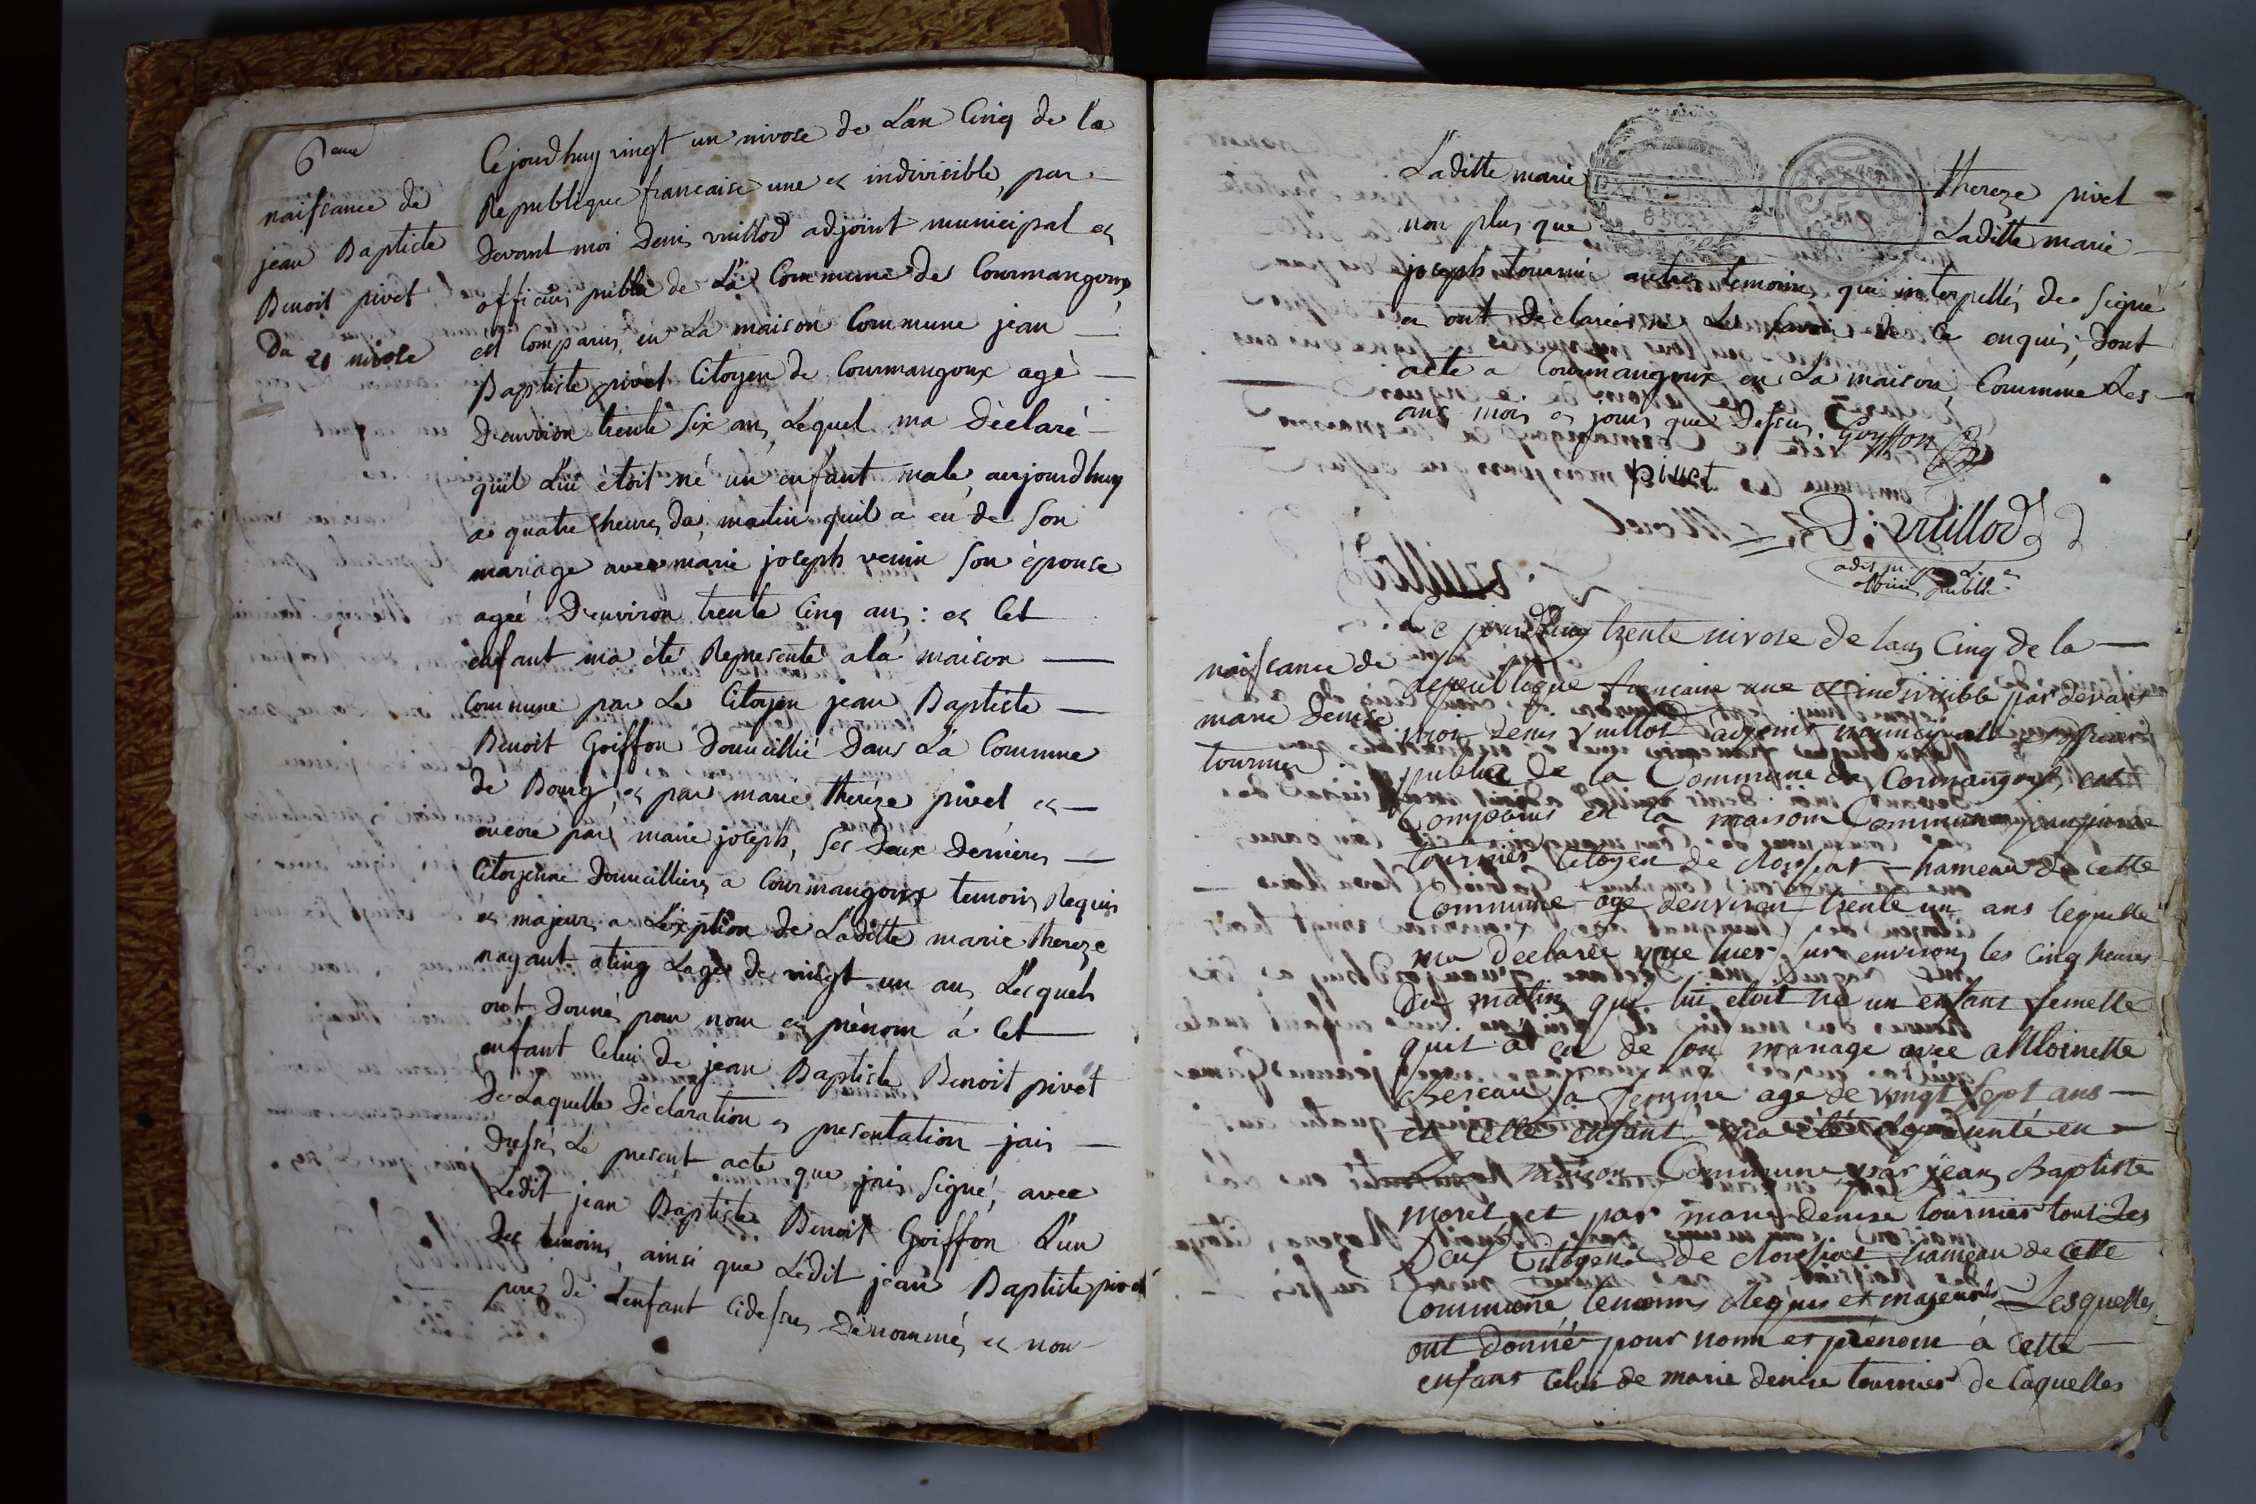 6eme
naissance de
jean Baptiste
Benoit pivet
du 21 nivose
Cejourdhuy vingt un nivose de L'an Cinq de la
Republique francaise une et indivisible, par
devant moi Denis vuillod adjoint municipal et
officier public de La Commune de Courmangoux
est Comparus en La maison Commune jean
Baptiste pivet Citoyen de Courmangoux agé
D'environ trente Six ans, Lequel ma déclaré
quil Lui étoit né un enfant male, aujourdhuy
a quatre heures du matin quil a eu de Son
mariage avec marie joseph venin Son épouse
ageé D'environ trente Cinq ans : et Cet
enfant ma été Representé a la maison
Commune par Le Citoyen jean Baptiste
Benoit Goiffon Domicillié Dans La Commune
de Bourg, et par marie thereze pivet, et
encore par marie joseph, Ses Deux Dernieres
Citoyenne Domicilliers a Courmangoux temoins Requis
et majeurs a L'exption de Laditte marie thereze
nayant ating Lage de vingt un ans Lesquels
ont Donnés pour nom et prénom à Cet
enfant Celui de jean Baptiste Benoit pivet
De Laquelle Déclaration et presentation jais
Dressés Le present acte que jais Signé, avec
Ledit jean Baptiste Benoit Goiffon L'un
Des temoins, ainsi que Ledit jean Baptiste pivet
pere de L'enfant Cidessus Dénommés, et non
Laditte marie thereze pivet
non plus que Laditte marie
joseph tournié autres temoins, qui interpellés de Signé
et ont déclarées ne Le Savoir de ce enquis, Dont
acte a Courmangoux en La maison Commune Les
ans mois et jours que Dessus. Goyffon
pivet
D: vuillod
officier public
Ce jourdhuy trente nivose de lans Cinq de la
naissance de
marie Denise
tournier
republique francaise une et indivisible par devant
moi Denis vuillot adjoint municipalle et officier
publice de la Commune de Cormangoux est
Comparus en la maison Commune
tournier Citoyen de Roissiat hameau de cette
Commune age denviron trente un ans lequelle
ma déclarée que hier sur environs les Cinq heures
du matin quil lui étoit né un enfans femelle
quil a eu de son mariage avec attoinette
Bereau sa femme age de vingt Sept ans
et celle enfant ma été représenté en
La maison Commune par jean Baptiste
morel et par marie denise tournier tout Les
Deux Citoyens de Roissiat hameau de cette
Commune temoins Requis et majeurs Lesquelles
ont donnée pour nom et prénom à cette
enfans celui de marie denise tournier de laquelles